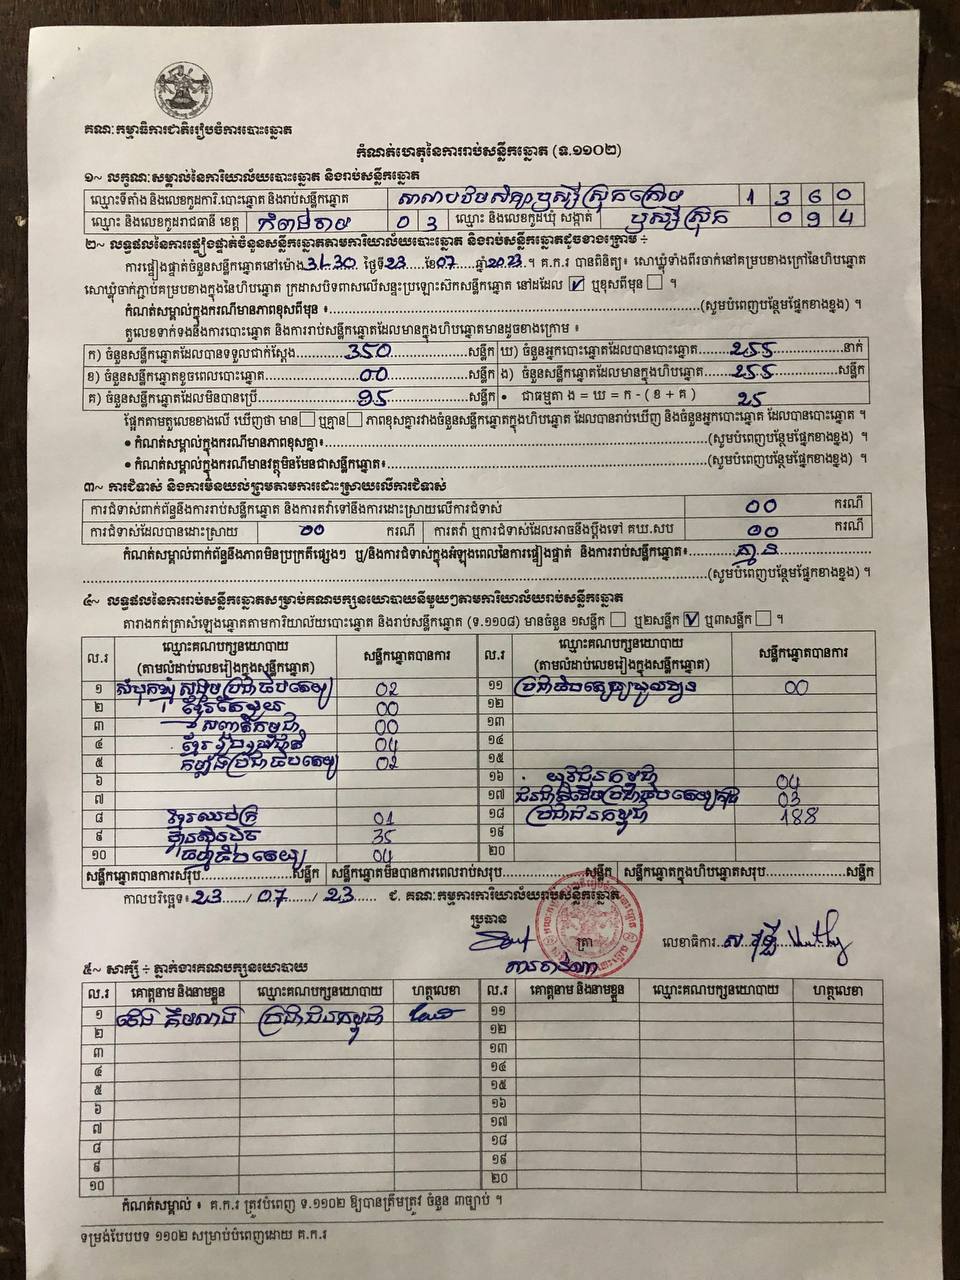 គណៈកម្មាធិការជាតិរៀបចំការបោះឆ្នោត
កំណត់ហេតុនៃការរាប់សន្លឹកឆ្នោត (ទ.១១០២)
១~ លក្ខណៈសម្គាល់នៃការិយាល័យបោះឆ្នោត និងរាប់សន្លឹកឆ្នោត
ឈ្មោះទីតាំង និងលេខកូដការិ.បោះឆ្នោត និងរាប់សន្លឹកឆ្នោត 1 3 6 0
ឈ្មោះ និងលេខកូដរាជធានី ខេត្ត កំពង់ចាម 0 3 ឈ្មោះ និងលេខកូដឃុំ សង្កាត់ ឫស្សីស្រុក 0 9 4
២~ លទ្ធផលនៃការផ្ទៀងផ្ទាត់ចំនួនសន្លឹកឆ្នោតតាមការិយាល័យបោះឆ្នោត និងរាប់សន្លឹកឆ្នោតដូចខាងក្រោម ÷
ការផ្ទៀងផ្ទាត់ចំនួនសន្លឹកឆ្នោតនៅម៉ោង ថ្ងៃទី 23 ខែ 07 ឆ្នាំ 2023 ។ គ.ក.រ បានពិនិត្យ៖ សោឃ្លុំទាំងពីរចាក់នៅគម្របខាងក្រៅនៃហិបឆ្នោត
សោឃ្លុំចាក់ភ្ជាប់គម្របខាងក្នុងនៃហិបឆ្នោត ក្រដាសបិទពាសលើសន្ទះប្រឡោះសិកសន្លឹកឆ្នោត នៅដដែល ✓ ឬខុសពីមុន ។
កំណត់សម្គាល់ក្នុងករណីមានភាពខុសពីមុន ៖ (សូមបំពេញបន្ថែមផ្នែកខាងខ្នង) ។
តួលេខទាក់ទងនឹងការបោះឆ្នោត និងការរាប់សន្លឹកឆ្នោតដែលមានក្នុងហិបឆ្នោតមានដូចខាងក្រោម ៖
ក) ចំនួនសន្លឹកឆ្នោតដែលបានទទួលជាក់ស្តែង 350 សន្លឹក ឃ) ចំនួនអ្នកបោះឆ្នោតដែលបានបោះឆ្នោត 255 នាក់
ខ) ចំនួនសន្លឹកឆ្នោតខូចពេលបោះឆ្នោត 00 សន្លឹក ង) ចំនួនសន្លឹកឆ្នោតដែលមានក្នុងហិបឆ្នោត 255 សន្លឹក
គ) ចំនួនសន្លឹកឆ្នោតដែលមិនបានប្រើ 95 សន្លឹក • ជាធម្មតា ង = ឃ = ក - ( ខ + គ ) 25
ផ្អែកតាមតួលេខខាងលើ ឃើញថា មាន ឬគ្មាន ភាពខុសគ្នារវាងចំនួនសន្លឹកឆ្នោតក្នុងហិបឆ្នោត ដែលបានរាប់ឃើញ និងចំនួនអ្នកបោះឆ្នោត ដែលបានបោះឆ្នោត ។
• កំណត់សម្គាល់ក្នុងករណីមានភាពខុសគ្នា៖ (សូមបំពេញបន្ថែមផ្នែកខាងខ្នង) ។
• កំណត់សម្គាល់ក្នុងករណីមានវត្ថុមិនមែនជាសន្លឹកឆ្នោត៖ (សូមបំពេញបន្ថែមផ្នែកខាងខ្នង) ។
៣~ ការជំទាស់ និងការមិនយល់ព្រមតាមការដោះស្រាយលើការជំទាស់
ការជំទាស់ពាក់ព័ន្ធនឹងការរាប់សន្លឹកឆ្នោត និងការតវ៉ាទៅនឹងការដោះស្រាយលើការជំទាស់ 00 ករណី
ការជំទាស់ដែលបានដោះស្រាយ 00 ករណី ការតវ៉ា ឬការជំទាស់ដែលអាចនឹងប្តឹងទៅ គឃ.សប 00 ករណី
កំណត់សម្គាល់ពាក់ព័ន្ធនឹងភាពមិនប្រក្រតីផ្សេងៗ ឬ/និងការជំទាស់ក្នុងអំឡុងពេលនៃការផ្ទៀងផ្ទាត់ និងការរាប់សន្លឹកឆ្នោត៖ គ្មាន
(សូមបំពេញបន្ថែមផ្នែកខាងខ្នង) ។
៤~ លទ្ធផលនៃការរាប់សន្លឹកឆ្នោតសម្រាប់គណបក្សនយោបាយនីមួយៗតាមការិយាល័យរាប់សន្លឹកឆ្នោត
តារាងកត់ត្រាសំឡេងឆ្នោតតាមការិយាល័យបោះឆ្នោត និងរាប់សន្លឹកឆ្នោត (ទ.១១០៨) មានចំនួន ១សន្លឹក ឬ២សន្លឹក ✓ ឬ៣សន្លឹក ។
ល.រ ឈ្មោះគណបក្សនយោបាយ (តាមលំដាប់លេខរៀងក្នុងសន្លឹកឆ្នោត) សន្លឹកឆ្នោតបានការ ល.រ ឈ្មោះគណបក្សនយោបាយ (តាមលំដាប់លេខរៀងក្នុងសន្លឹកឆ្នោត) សន្លឹកឆ្នោតបានការ
១ សំបុកឃ្មុំសង្គមប្រជាធិបតេយ្យ 02 ១១ 00
២ ខ្មែរតែមួយ 00 ១២
៣ សញ្ជាតិកម្ពុជា 00 ១៣
៤ ខ្មែររួបរួមជាតិ 04 ១៤
៥ កម្លាំងប្រជាធិបតេយ្យ 02 ១៥
៦ ១៦ យុវជនកម្ពុជា 04
៧ ១៧ ជនជាតិដើមប្រជាធិបតេយ្យកម្ពុជា 03
៨ ខ្មែរឈប់ក្រ 01 ១៨ ប្រជាជនកម្ពុជា 188
៩ ហ៊្វុនស៊ិនប៉ិច 35 ១៩
១០ ធម្មាធិបតេយ្យ 04 ២០
សន្លឹកឆ្នោតបានការសរុប សន្លឹក សន្លឹកឆ្នោតមិនបានការពេលរាប់សរុប សន្លឹក សន្លឹកឆ្នោតក្នុងហិបឆ្នោតសរុប សន្លឹក
កាលបរិច្ឆេទ៖ 23 / 07 / 23 ជ. គណៈកម្មការការិយាល័យរាប់សន្លឹកឆ្នោត
ប្រធាន
ត្រា លេខាធិការ
៥~ សាក្សី ÷ ភ្នាក់ងារគណបក្សនយោបាយ
ល.រ គោត្តនាម និងនាមខ្លួន ឈ្មោះគណបក្សនយោបាយ ហត្ថលេខា ល.រ គោត្តនាម និងនាមខ្លួន ឈ្មោះគណបក្សនយោបាយ ហត្ថលេខា
១ ប្រជាជនកម្ពុជា ១១
២ ១២
៣ ១៣
៤ ១៤
៥ ១៥
៦ ១៦
៧ ១៧
៨ ១៨
៩ ១៩
១០ ២០
កំណត់សម្គាល់ ៖ គ.ក.រ ត្រូវបំពេញ ទ.១១០២ ឱ្យបានត្រឹមត្រូវ ចំនួន ៣ច្បាប់ ។
ទម្រង់បែបបទ ១១០២ សម្រាប់បំពេញដោយ គ.ក.រ